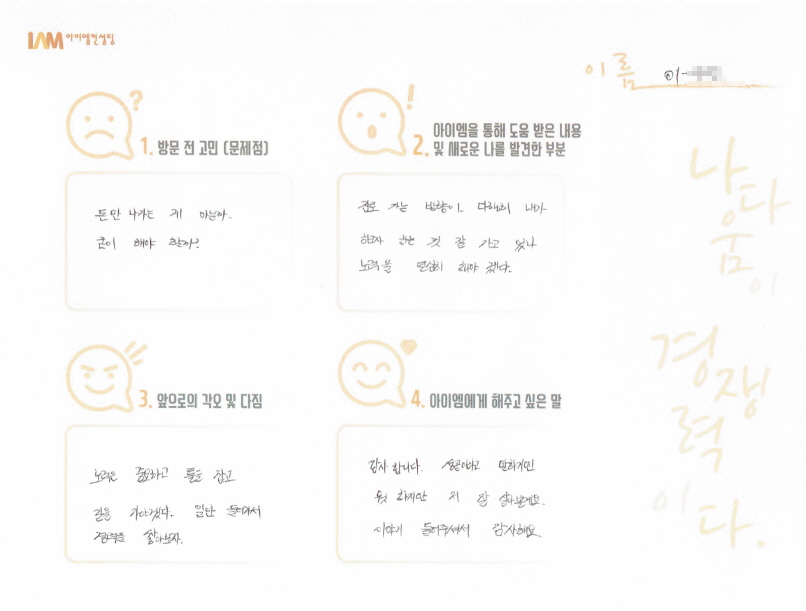 IAM 아이엠컨설팅
이름 이
1. 방문 전 고민 (문제점)
돈만 나가는 게 아닐까.
굳이 해야 할까?
2. 아이엠을 통해 도움 받은 내용
및 새로운 나를 발견한 부분
진로 가는 방향이. 다행히 내가
하고자 하는 것 잘 가고 있나
노력을 열심히 해야 겠다.
3. 앞으로의 각오 및 다짐
노력은 필요하고 틀을 잡고
길을 가야겠다. 일단 들어가서
경력을 쌓아보자.
4. 아이엠에게 해주고 싶은 말
감사 합니다. 성공이라고 말하기엔
뭣 하지만 저 잘 살아볼게요.
이야기 들어주셔서 감사해요.
나다움이
경쟁력이다.